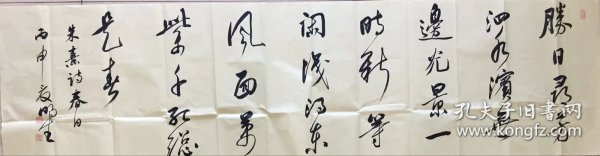 勝日尋芳
泗水濱無
邊光景一
時新等
閑識得東
風面萬
紫千紅總
是春
朱熹詩春日
丙申
孔夫子旧书网